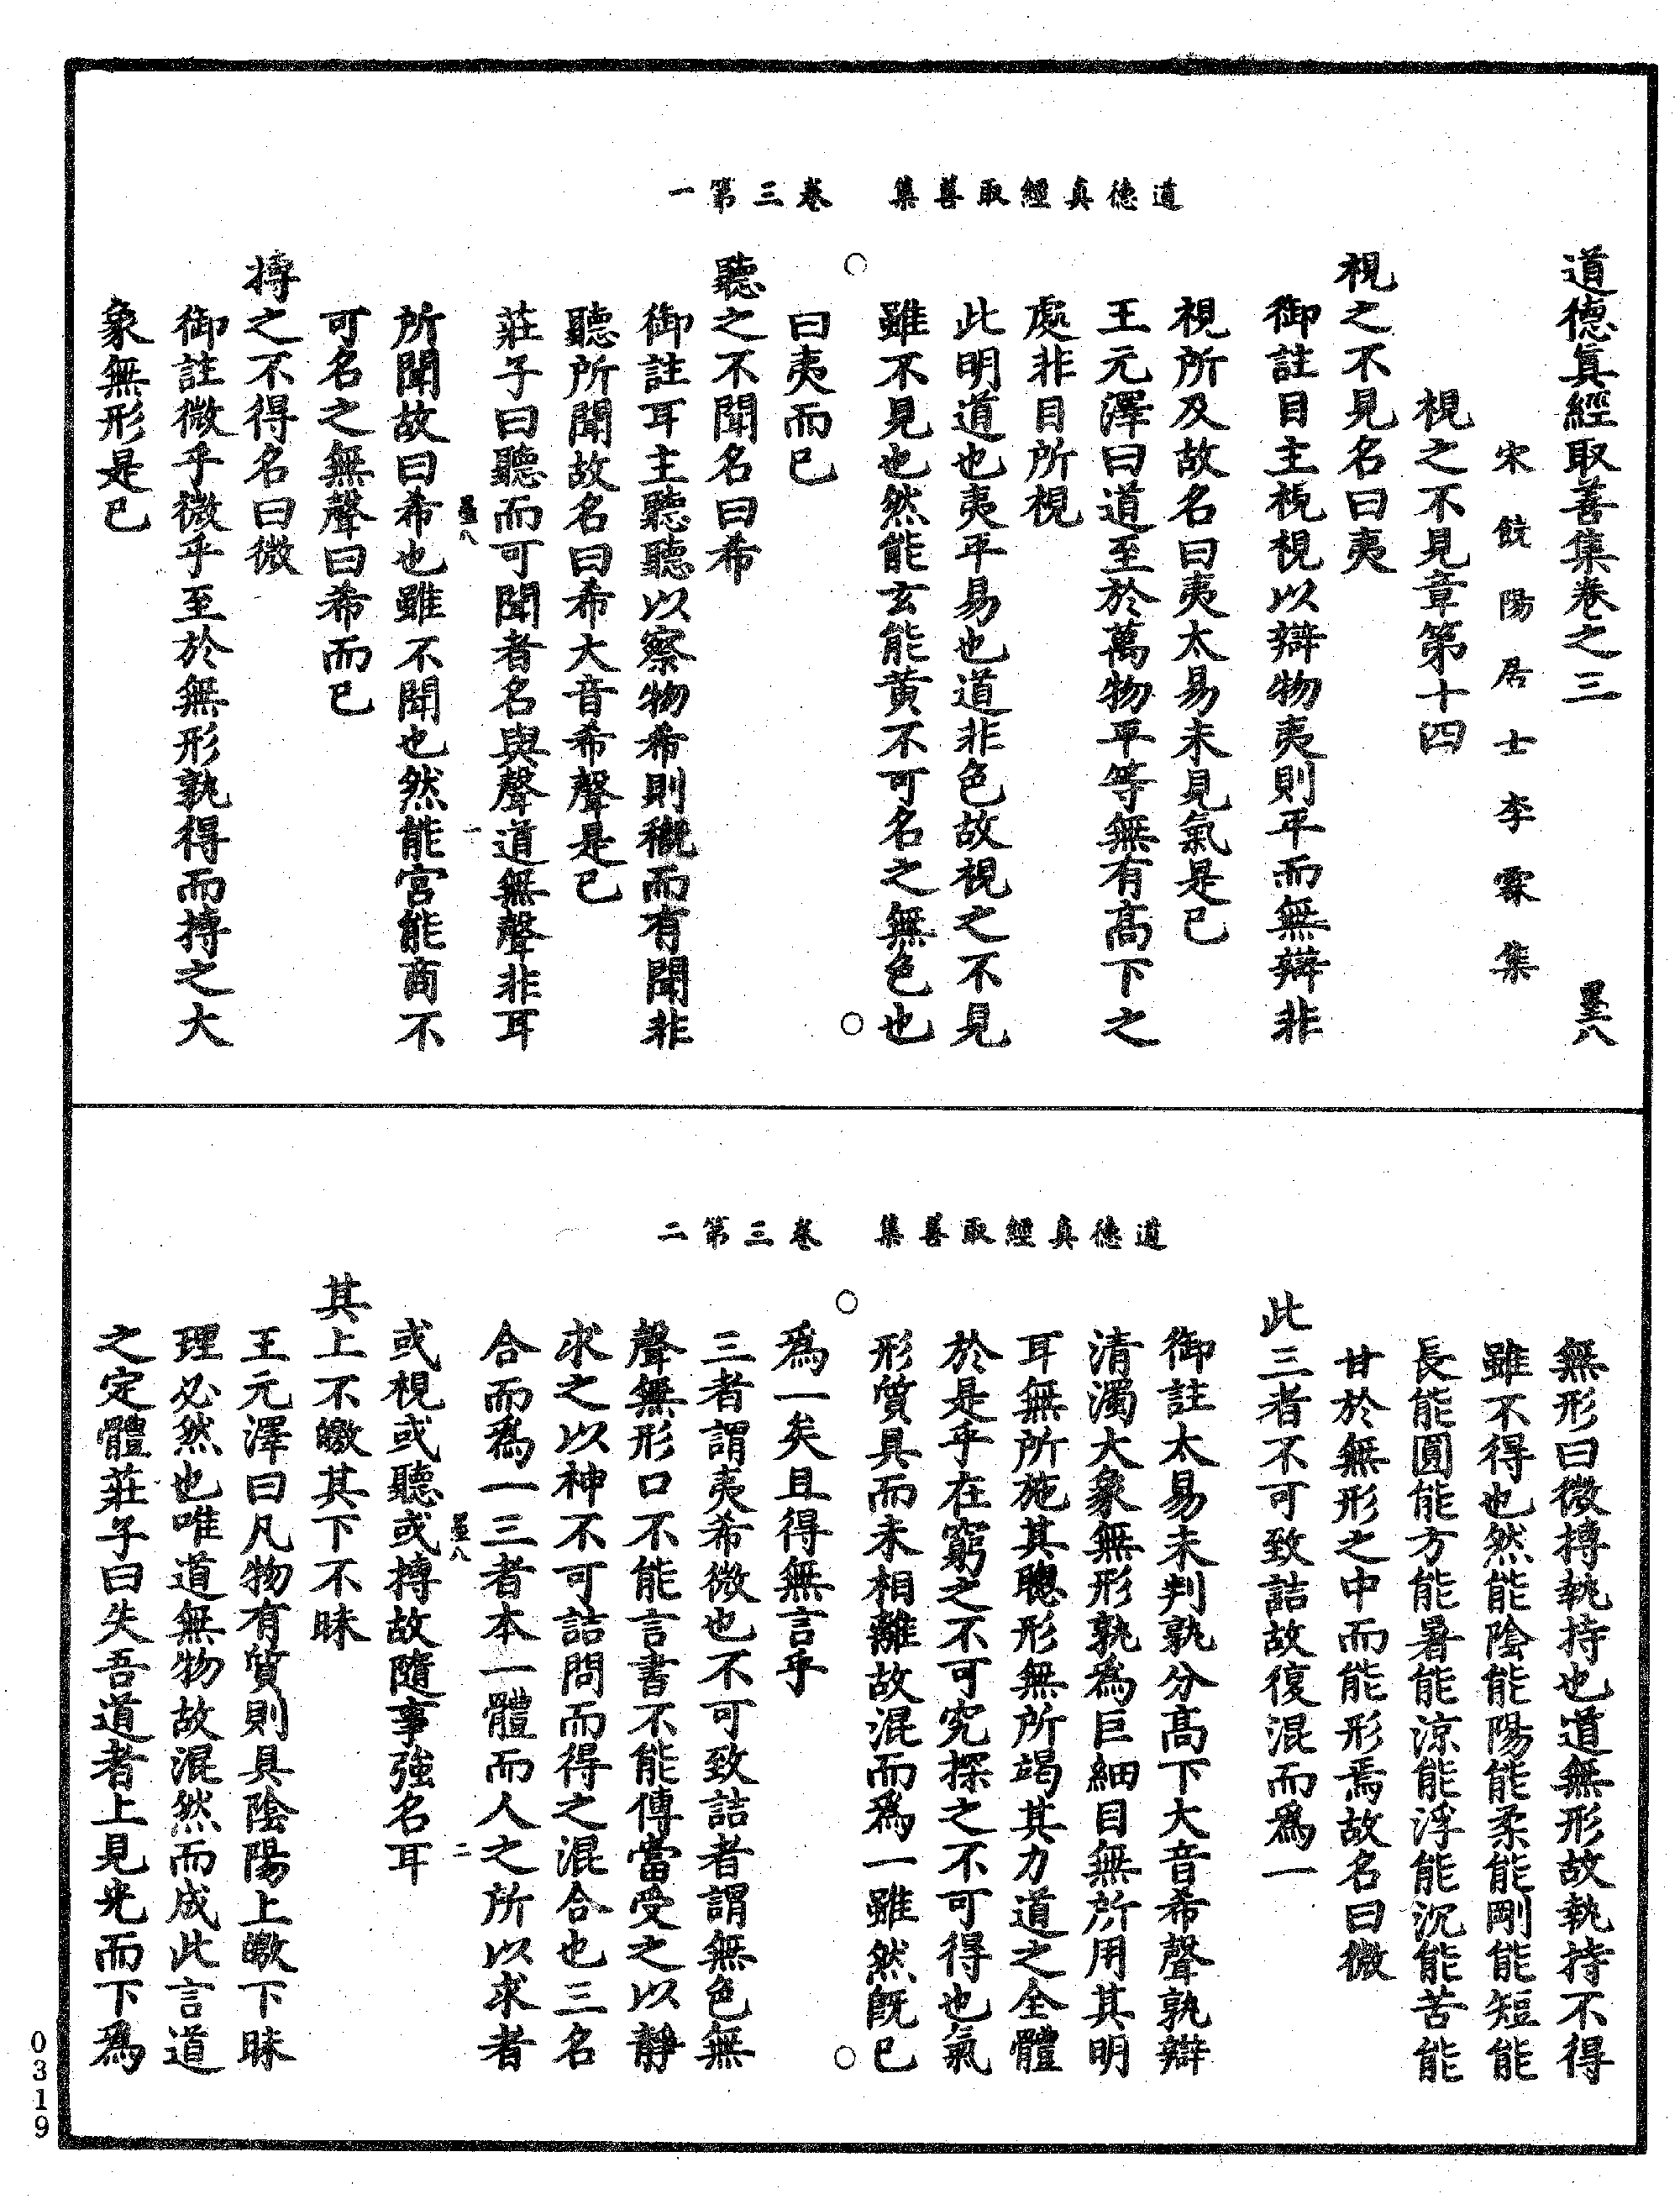 道德真經取善集　卷三第一
道德真經取善集卷之三　墨八
宋饒陽居士李霖集
視之不見章第十四
視之不見名曰夷
御註目主視視以辯物夷則平而無辯非
視所及故名曰夷太易未見氣是已
王元澤曰道至於萬物平等無有高下之
處非目所視
此明道也夷平易也道非色故視之不見
雖不見也然能玄能黃不可名之無色也
曰夷而已
聽之不聞名曰希
御註耳主聽聽以察物希則概而有聞非
聽所聞故名曰希大音希聲是已
莊子曰聽而可聞者名與聲道無聲非耳
墨八　一
所聞故曰希也雖不聞也然能宮能商不
可名之無聲曰希而已
摶之不得名曰微
御註微乎微乎至於無形孰得而摶之大
象無形是已
道德真經取善集　卷三第二
無形曰微摶執持也道無形故執持不得
雖不得也然能陰能陽能柔能剛能短能
長能圓能方能暑能涼能浮能沉能苦能
甘於無形之中而能形焉故名曰微
此三者不可致詰故復混而為一
御註太易未判孰分高下大音希聲孰辯
清濁大象無形孰為巨細目無所用其明
耳無所施其聰形無所竭其力道之全體
於是乎在窮之不可究探之不可得也氣
形質具而未相離故混而為一雖然既已
為一矣且得無言乎
三者謂夷希微也不可致詰者謂無色無
聲無形口不能言書不能傳當受之以靜
求之以神不可詰問而得之混合也三名
合而為一三者本一體而人之所以求者
墨八　二
或視或聽或摶故隨事強名耳
其上不皦其下不昧
王元澤曰凡物有質則具陰陽上皦下昧
理必然也唯道無物故混然而成此言道
之定體莊子曰失吾道者上見光而下為
0319